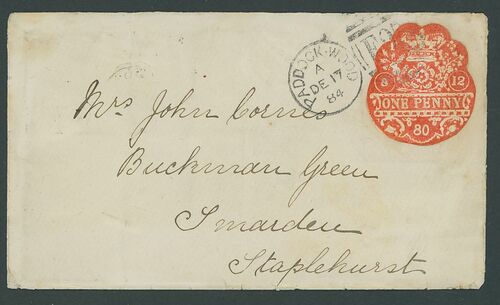 PADDOCK-WOOD
A
DE 17
84
8 12
ONE PENNY
80
Mrs John Cornes
Buckman Green
Smarden
Staplehurst